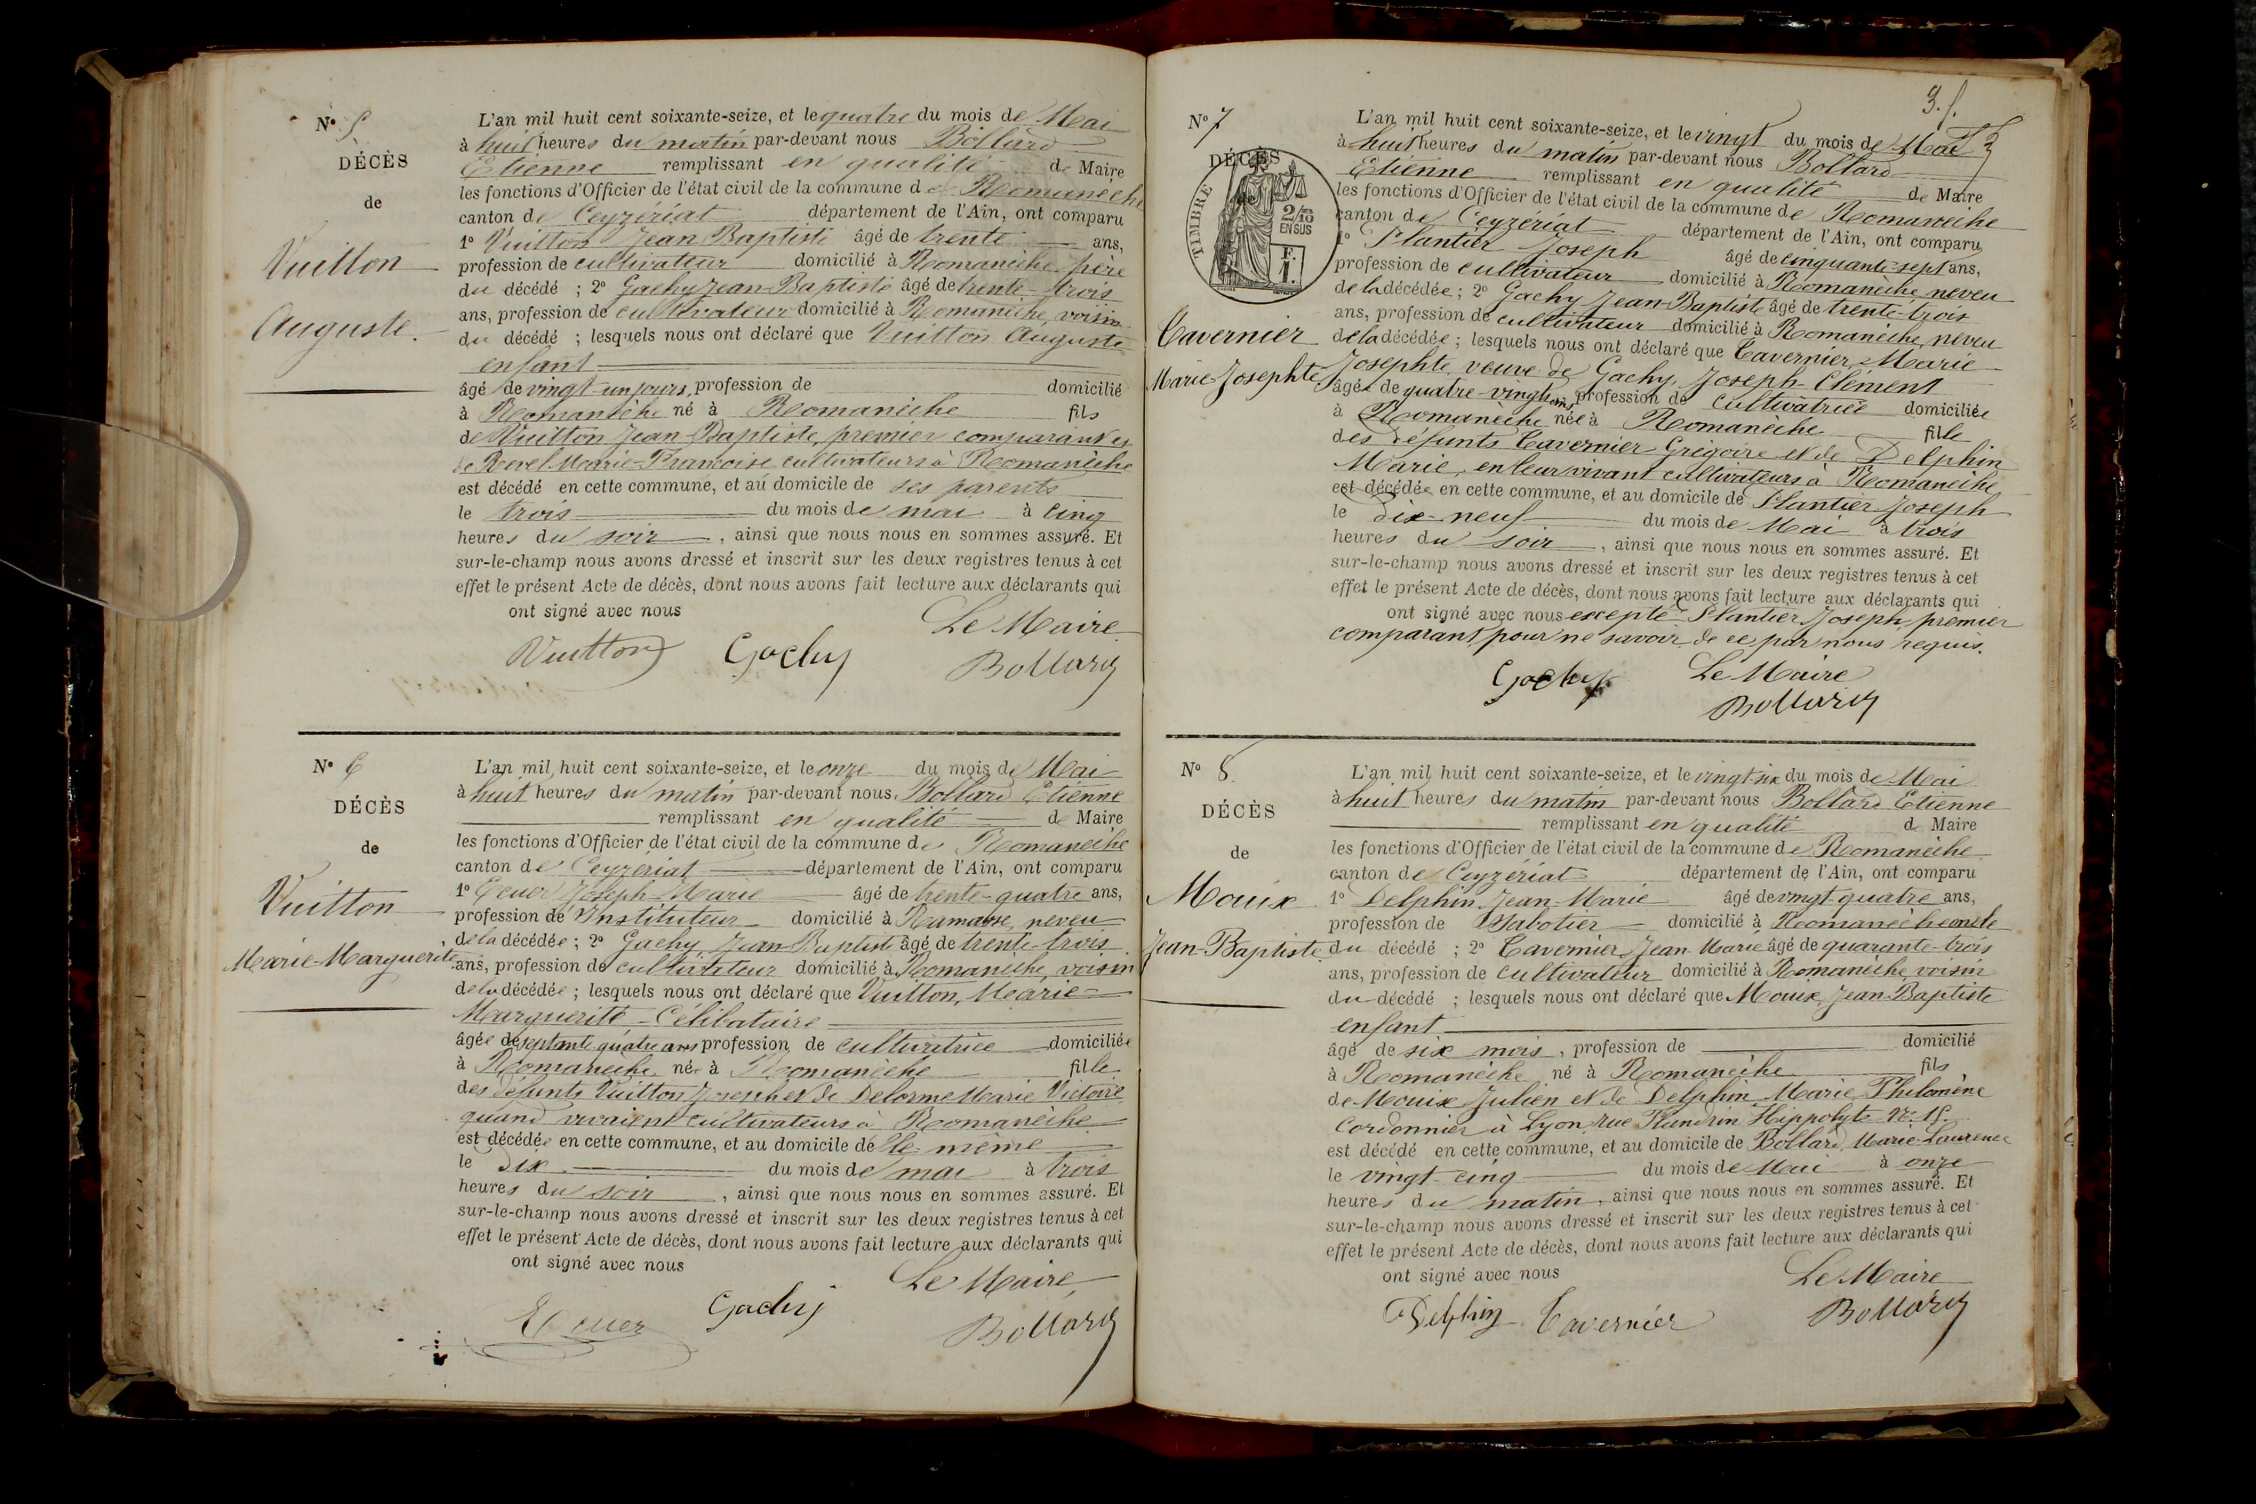 N° 5
DÉCÈS
de
Vuitton
Auguste.
L'an mil huit cent soixante-seize, et le quatre du mois de Mai
à huit heures du matin par-devant nous Bollard
Etienne remplissant en qualité de Maire
les fonctions d'Officier de l'état civil de la commune de Romanèche
canton de Ceyzériat département de l'Ain, ont comparu
1° Vuitton Jean Baptiste âgé de trente ans,
profession de cultivateur domicilié à Romanèche père
du décédé ; 2° Gachy Jean-Baptiste âgé de trente-trois
ans, profession de cultivateur domicilié à Romanèche, voisin
du décédé ; lesquels nous ont déclaré que Vuitton Auguste
enfant
âgé de vingt-un jours, profession de domicilié
à Romanèche né à Romanèche fils
de Vuitton Jean-Baptiste, premier comparant et
de Revel Marie-Francoise cultivateurs à Romanèche
est décédé en cette commune, et au domicile de ses parents
le trois du mois de mai à cinq
heures du soir, ainsi que nous nous en sommes assuré. Et
sur-le-champ nous avons dressé et inscrit sur les deux registres tenus à cet
effet le présent Acte de décès, dont nous avons fait lecture aux déclarants qui
ont signé avec nous
Le Maire
Vuitton Gachy Bollard
N° 6
DÉCÈS
de
Vuitton
Marie-Marguerite
L'an mil huit cent soixante-seize, et le onze du mois de Mai
à huit heures du matin par-devant nous, Bollard Etienne
remplissant en qualité de Maire
les fonctions d'Officier de l'état civil de la commune de Romanèche
canton de Ceyzeriat département de l'Ain, ont comparu
1° Ecuer Joseph-Marie âgé de trente-quatre ans,
profession de Instituteur domicilié à Ramasse, neveu
de la décédée ; 2° Gachy Jean-Baptiste âgé de trente-trois
ans, profession de cultivateur domicilié à Romanèche, voisin
de la décédée ; lesquels nous ont déclaré que Vuitton, Marie-
Marguerite - Célibataire
âgée de septante quatre ans profession de cultivatrice domiciliée
à Romanèche née à Romanèche fille
des défunts Vuitton Joseph et de Delorme Marie Victoire
quand vivaient cultivateurs à Romanèche
est décédée en cette commune, et au domicile de elle-même
le dix du mois de mai à trois
heures du soir, ainsi que nous nous en sommes assuré. Et
sur-le-champ nous avons dressé et inscrit sur les deux registres tenus à cet
effet le présent Acte de décès, dont nous avons fait lecture aux déclarants qui
ont signé avec nous
Le Maire,
Ecuer Gachy Bollard
3.
N° 7
DÉCÈS
TIMBRE
2/10
EN SUS
F.
1.
Tavernier
Marie-Josephte
L'an mil huit cent soixante-seize, et le vingt du mois de Mai
à huit heures du matin par-devant nous Bollard
Etienne remplissant en qualité de Maire
les fonctions d'Officier de l'état civil de la commune de Romanèche
canton de Ceyzériat département de l'Ain, ont comparu
1° Plantier Joseph âgé de cinquante-sept ans,
profession de cultivateur domicilié à Romanèche, neveu
de la décédée ; 2° Gachy Jean-Baptiste âgé de trente-trois
ans, profession de cultivateur domicilié à Romanèche, neveu
de la décédée ; lesquels nous ont déclaré que Tavernier, Marie
Josephte veuve de Gachy, Joseph-Clément
âgée de quatre-vingt ans profession de cultivatrice domiciliée
à Romanèche née à Romanèche fille
des défunts Tavernier Grégoire et de Delphin
Marie, en leur vivant cultivateurs à Romanèche
est décédée en cette commune, et au domicile de Plantier Joseph
le dix-neuf du mois de Mai à trois
heures du soir, ainsi que nous nous en sommes assuré. Et
sur-le-champ nous avons dressé et inscrit sur les deux registres tenus à cet
effet le présent Acte de décès, dont nous avons fait lecture aux déclarants qui
ont signé avec nous excepté Plantier Joseph premier
comparant, pour ne savoir de ce par nous requis.
Gachy Le Maire
Bollard
N° 8
DÉCÈS
de
Mouix
Jean-Baptiste
L'an mil huit cent soixante-seize, et le vingt-six du mois de Mai
à huit heures du matin par-devant nous Bollard Etienne
remplissant en qualité de Maire
les fonctions d'Officier de l'état civil de la commune de Romanèche
canton de Ceyzériat département de l'Ain, ont comparu
1° Delphin Jean-Marie âgé de vingt-quatre ans,
profession de Sabotier domicilié à Romanèche oncle
du décédé ; 2° Tavernier Jean-Marie âgé de quarante-trois
ans, profession de cultivateur domicilié à Romanèche voisin
du décédé ; lesquels nous ont déclaré que Mouix Jean-Baptiste
enfant
âgé de six mois, profession de domicilié
à Romanèche né à Romanèche fils
de Mouix Julien et de Delphin Marie Philomène
Cordonnier à Lyon, rue Flandrin Hippolyte N°
est décédé en cette commune, et au domicile de Bollard, Marie-Laurence
le vingt-cinq du mois de Mai à onze
heures du matin, ainsi que nous nous en sommes assuré. Et
sur-le-champ nous avons dressé et inscrit sur les deux registres tenus à cet
effet le présent Acte de décès, dont nous avons fait lecture aux déclarants qui
ont signé avec nous
Le Maire
Delphin Tavernier Bollard